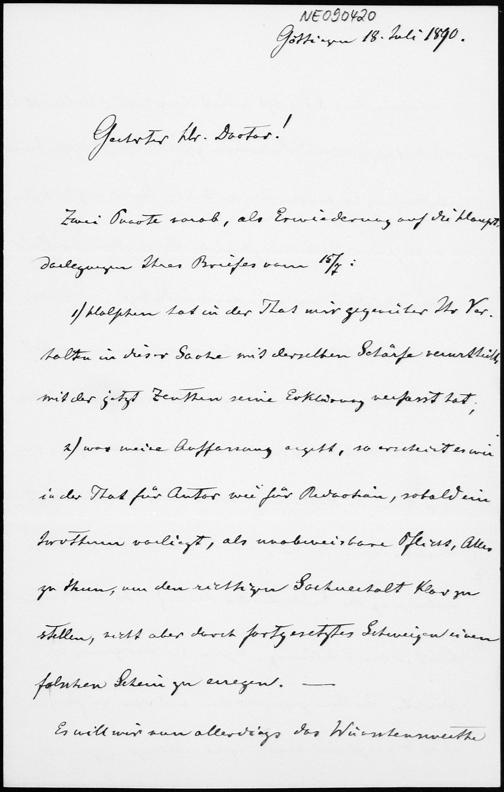 NE090420
Göttingen 18. Juli 1890.
Geehrter Hr. Doctor!
Zwei Worte vorab, als Erwiederung auf die Haupt-
darlegungen Ihres Briefes vom 15/7:
1) Halphen hat in der That mir gegenüber Ihr Ver-
halten in dieser Sache mit derselben Schärfe verurtheilt,
mit der jetzt Zeuthen seine Erklärung verfasst hat,
2) was meine Auffassung angeht, so erscheint es mir
in der That für Autor wie für Redaction, sobald ein
Irrthum vorliegt, als unabweisbare Pflicht, Alles
zu thun, um den richtigen Sachverhalt klar zu
stellen, nicht aber durch fortgesetztes Schweigen einen
falschen Schein zu erregen. —
Es will mir nun allerdings das Wünschenswerthe